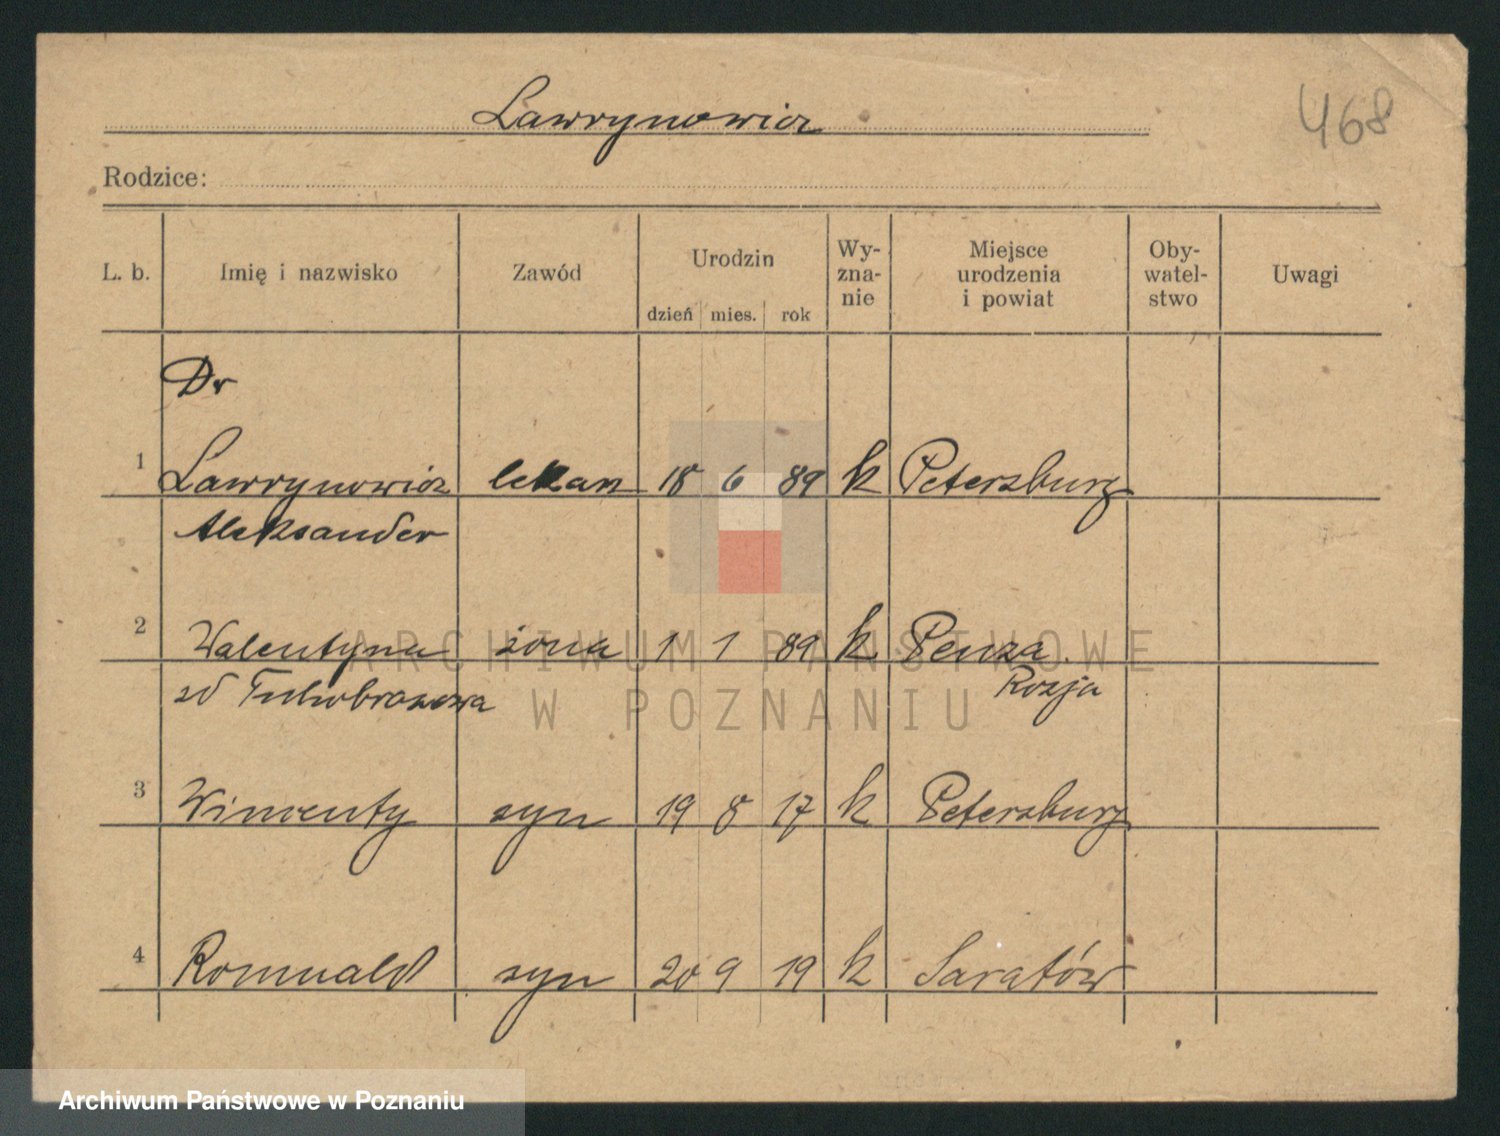 Lawrynowicz
468
Rodzice:
L. b. Imię i nazwisko Zawód Urodzin dzień mies. rok Wy-zna-nie Miejsce urodzenia i powiat Oby-watel-stwo Uwagi
Dr
1 Lawrynowicz lekarz 18 6 89 k Petersburg
Aleksander
2 Walentyna żona 1 1 89 k Penza
zd Rosja
3 Wincenty syn 19 8 17 k Petersburg
4 Romuald syn 20 9 19 k Saratów
ARCHIWUM PAŃSTWOWE
W POZNANIU
Archiwum Państwowe w Poznaniu